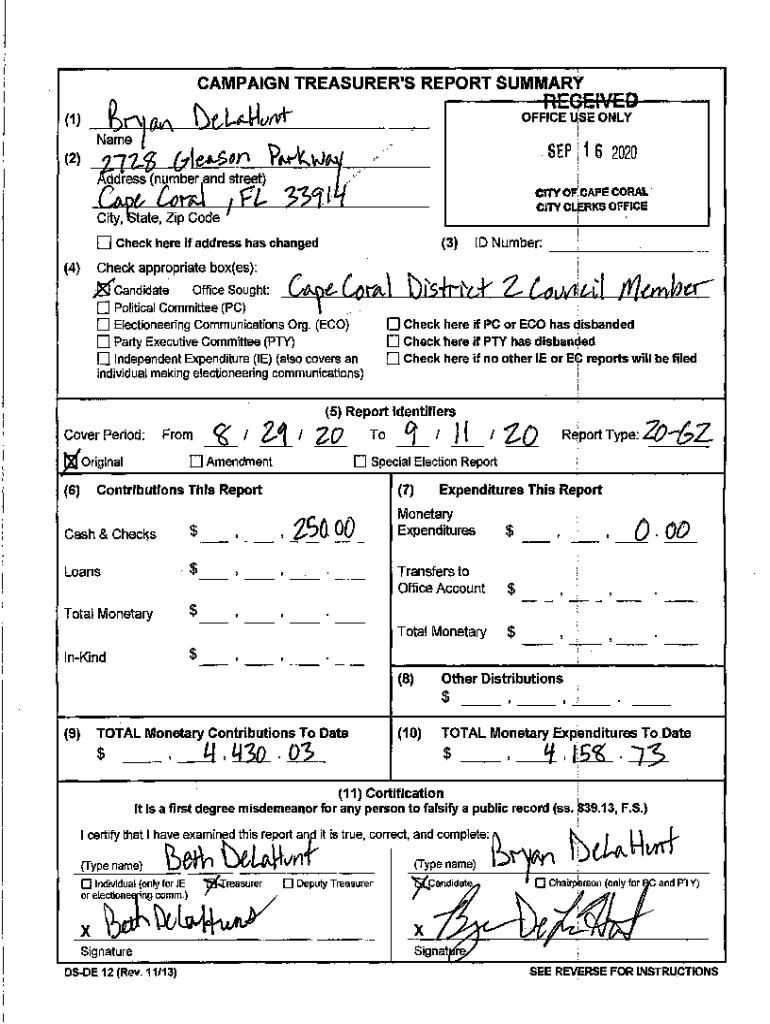 CAMPAIGN TREASURER'S REPORT SUMMARY
(1) Bryan DeLaHunt
Name
RECEIVED
OFFICE USE ONLY
SEP 16 2020
CITY OF CAPE CORAL
CITY CLERKS OFFICE
(2) 2728 Gleason Parkway
Address (number and street)
Cape Coral, FL 33914
City, State, Zip Code
Check here if address has changed
(3) ID Number:
(4) Check appropriate box(es):
Candidate Office Sought: Cape Coral District 2 Council Member
Political Committee (PC)
Electioneering Communications Org. (ECO)
Party Executive Committee (PTY)
Independent Expenditure (IE) (also covers an
individual making electioneering communications)
Check here if PC or ECO has disbanded
Check here if PTY has disbanded
Check here if no other IE or EC reports will be filed
(5) Report Identifiers
Cover Period: From 8 / 29 / 20 To 9 / 11 / 20 Report Type: 20-G2
Original Amendment Special Election Report
(6) Contributions This Report
Cash & Checks $ , , 250.00
Loans $ , , .
Total Monetary $ , , .
In-Kind $ , , .
(7) Expenditures This Report
Monetary
Expenditures $ , , 0.00
Transfers to
Office Account $ , , .
Total Monetary $ , , .
(8) Other Distributions
$ , , .
(9) TOTAL Monetary Contributions To Date
$ , 4,430.03
(10) TOTAL Monetary Expenditures To Date
$ , 4,158.73
(11) Certification
It is a first degree misdemeanor for any person to falsify a public record (ss. 839.13, F.S.)
I certify that I have examined this report and it is true, correct, and complete:
(Type name) Beth DeLaHunt
Individual (only for IE Treasurer Deputy Treasurer
or electioneering comm.)
X Beth DeLaHunt
Signature
(Type name) Bryan DeLaHunt
Candidate Chairperson (only for PC and PTY)
X Bryan DeLaHunt
Signature
DS-DE 12 (Rev. 11/13) SEE REVERSE FOR INSTRUCTIONS